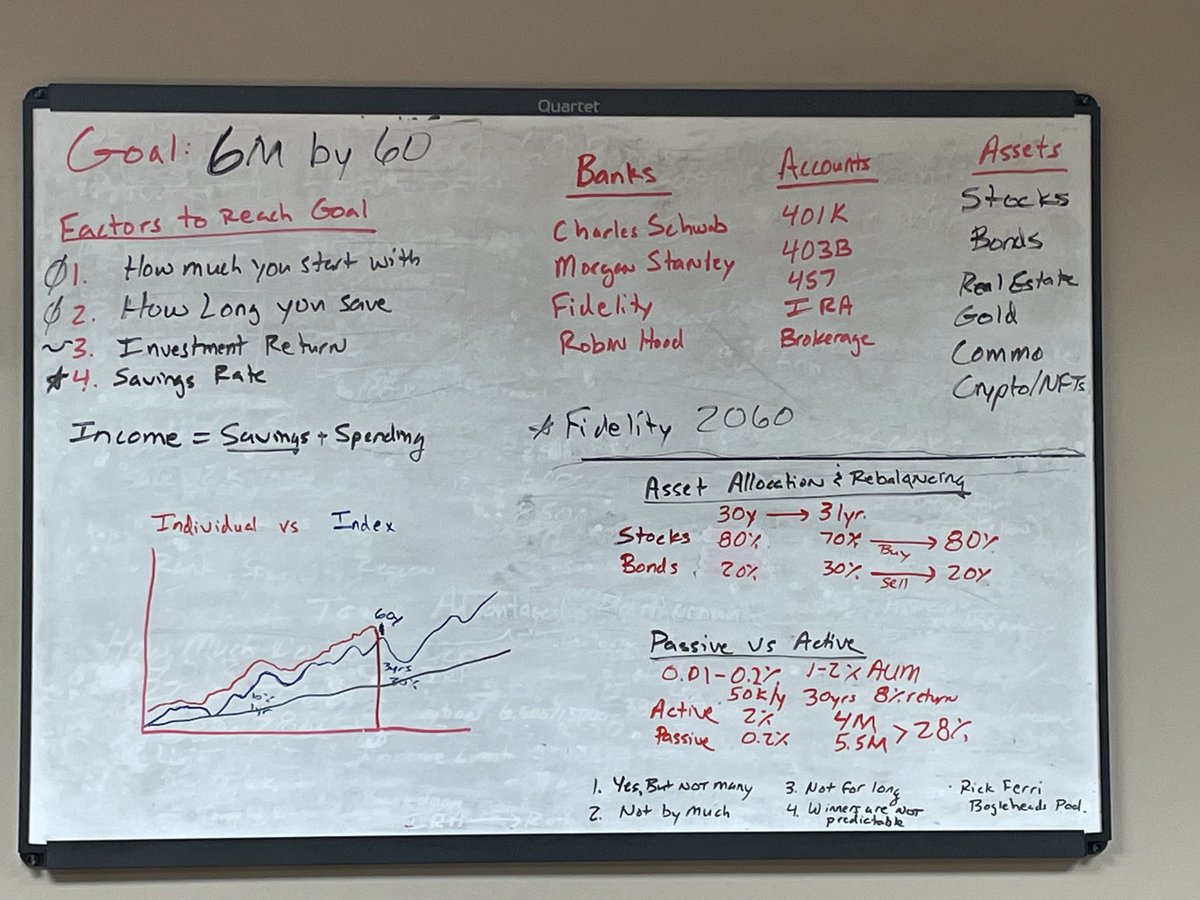 Quartet
Goal: 6M by 60
Factors to Reach Goal
Ø1. How much you start with
Ø2. How Long you save
~3. Investment Return
☆4. Savings Rate
Income = Savings + Spending
Individual vs Index
60y
3yrs
30%
Banks
Charles Schwab
Morgan Stanley
Fidelity
Robin Hood
Accounts
401K
403B
457
IRA
Brokerage
Assets
Stocks
Bonds
Real Estate
Gold
Commo
Crypto/NFTs
☆ Fidelity 2060
Asset Allocation & Rebalancing
30y → 31yr.
Stocks 80% 70% → Buy 80%
Bonds 20% 30% → Sell 20%
Passive vs Active
0.01-0.2% 1-2% AUM
50k/y 30yrs 8% return
Active 2% 4M
Passive 0.2% 5.5M > 28%
1. Yes, But NOT many
2. Not by much
3. Not for long
4. Winners are NOT
predictable
· Rick Ferri
Bogleheads Pod.